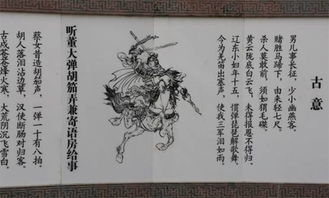 古意
男儿事长征，少小幽燕客。
赌胜马蹄下，由来轻七尺。
杀人莫敢前，须如猬毛磔。
黄云陇底白云飞，未得报恩不得归。
辽东小妇年十五，惯弹琵琶解歌舞。
今为羌笛出塞声，使我三军泪如雨。
听董大弹胡笳弄兼寄语房给事
蔡女昔造胡笳声，一弹一十有八拍。
胡人落泪沾边草，汉使断肠对归客。
古戍苍苍烽火寒，大荒阴沉飞雪白。